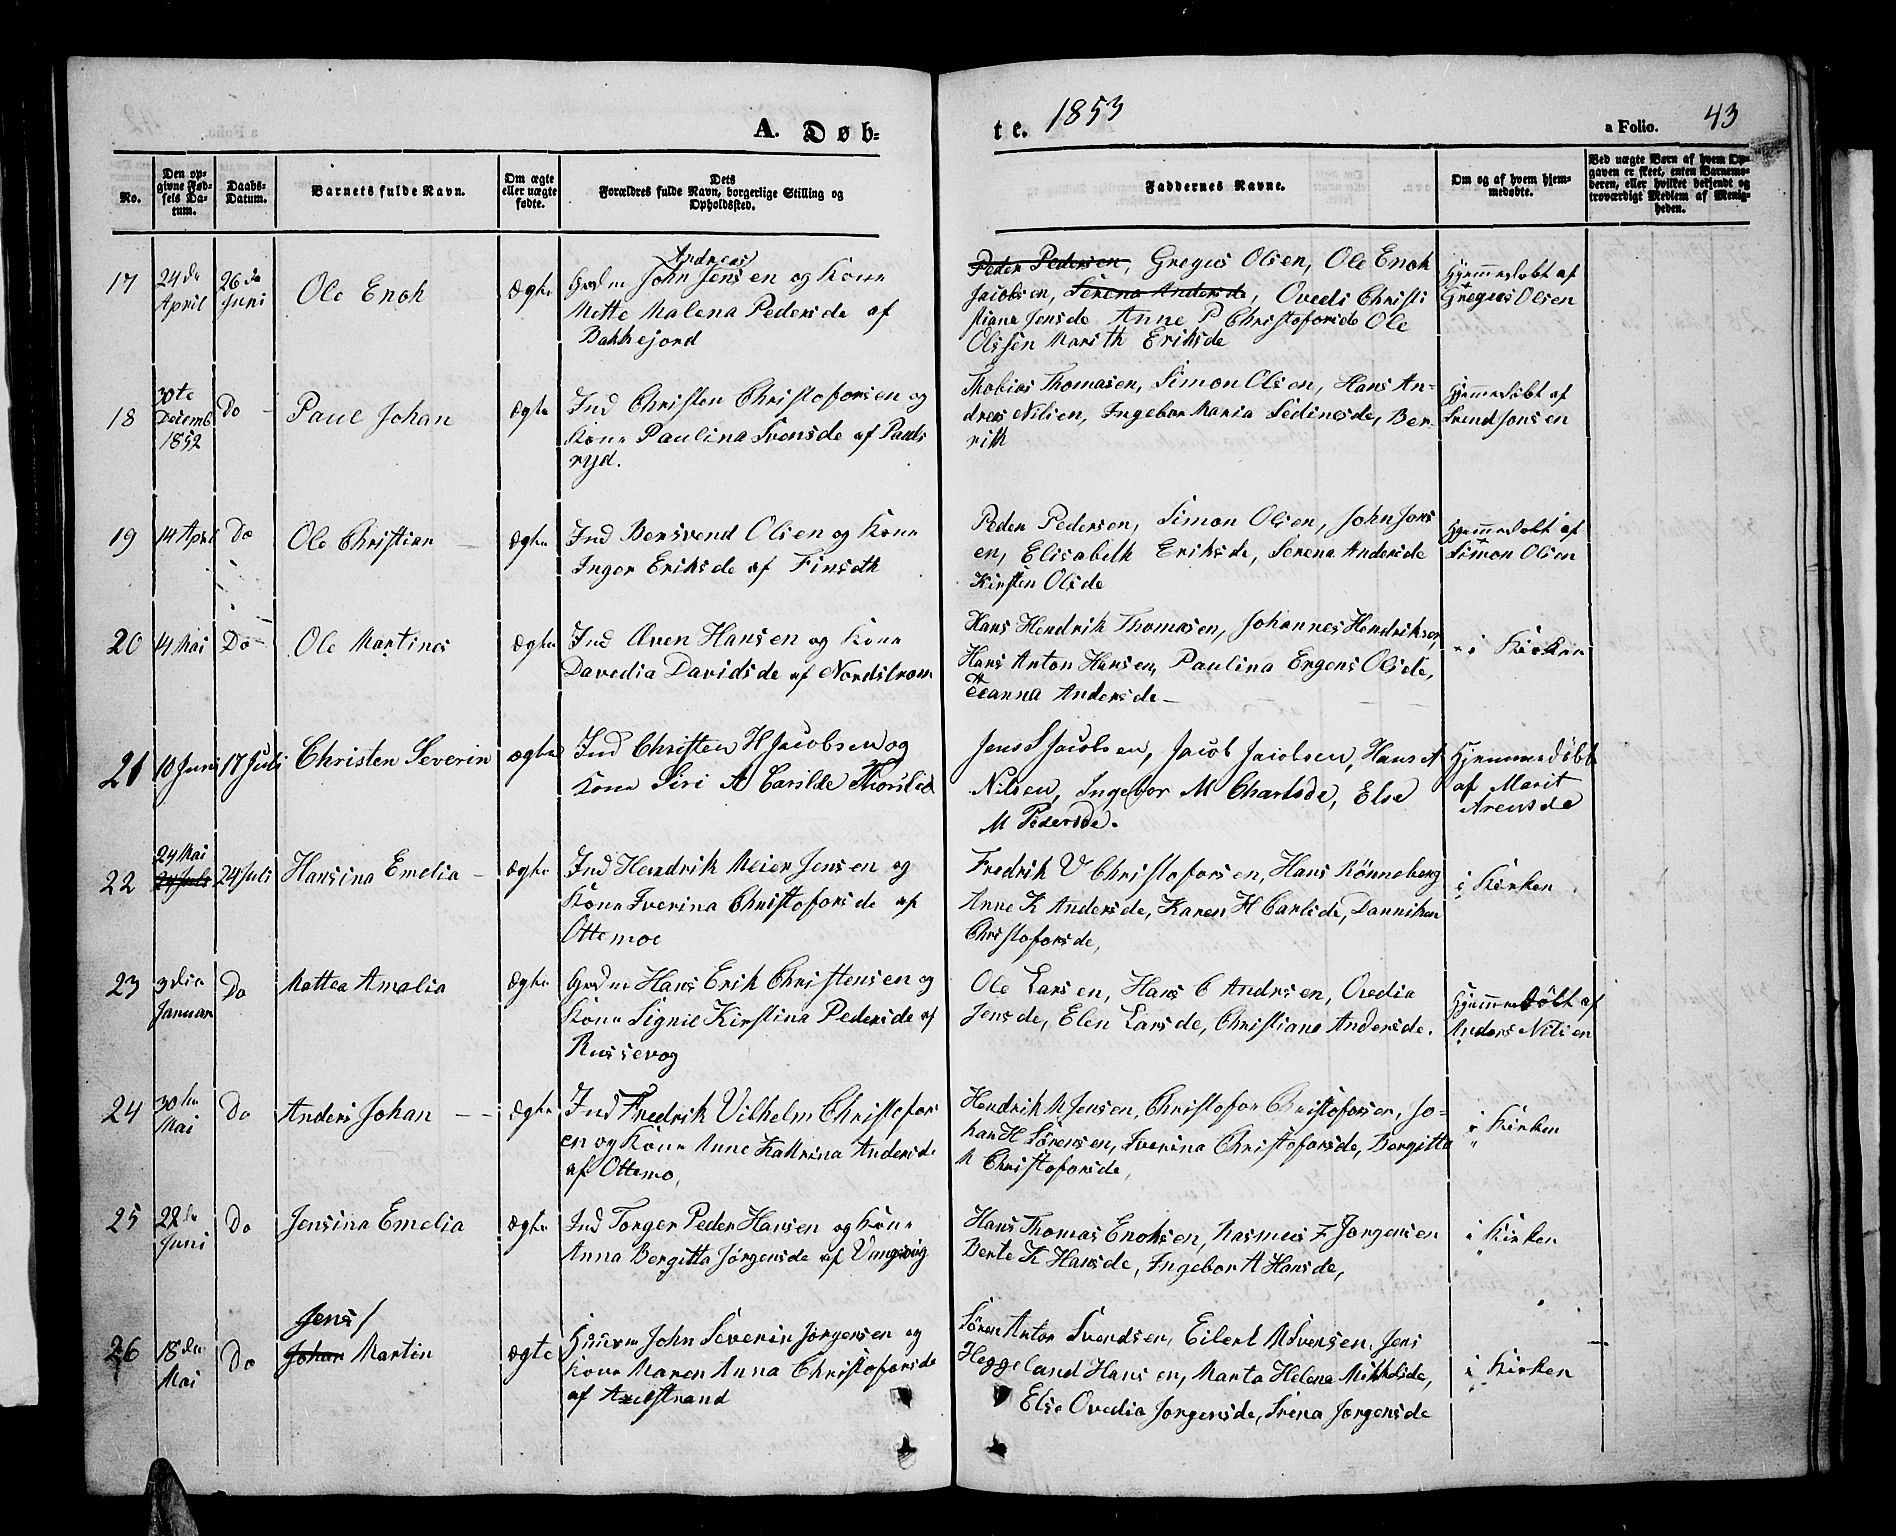 A. Døb-
te. 1853
a Folio. 43
No.
Den op-
givne Fød-
sels Da-
tum.
Daabs-
Datum.
Barnets fulde Navn.
Om ægte
eller uægte
fødte.
Dets
Forældres fulde Navn, borgerlige Stilling og
Opholdssted.
Faddernes Navne.
Om og af hvem hjem-
medøbte.
Ved uægte Børn af hvem Op-
gaven er skeet, enten Barnemo-
deren, eller hvilket bekjendt og
troværdigt Medlem af Menig-
heden.
17
24de
April
26de
Juni
Ole Enok
Ægte
Andreas
Grdm John Jensen og Kone
Mette Malena Pedersde af
Bakkejord
Peder Pedersen, Gregus Olsen, Ole Enok
Jacobsen, Serena Andersde, Ovedi Christi
stiana Jensde Anne P Christofersde Ole
Olsen Marith Eriksde
Hjemmedøbt af
Gregus Olsen
18
30te
Decemb
1852
Do
Paul Johan
Ægte
Ind Christen Christofersen og
Kone Paulina Svensde af Pauls
ryd.
Thobias Thomasen, Simon Olsen, Hans An-
dreas Nilsen, Ingebor Maria Sedinesde, Ber-
rith
Hjemmedøbt af
Svend Jonsen
19
14 April
Do
Ole Christian
Ægte
Ind Bersvend Olsen og Kone
Inger Eriksde af Finsæth
Peder Pedersen, Simon Olsen, John Jons
en, Elisabeth Eriksde, Serena Andersde
Kirsten Olsde
Hjemmedøbt af
Simon Olsen
20
14 Mai
Do
Ole Martines
Ægte
Ind Aven Hansen og Kone
Davedia Davidsde af Nordstrom
Hans Hendrik Thomasen, Johannes Hendriksen,
Hans Anton Hansen, Paulina Ergens Olsde,
Hanna Andersde
i Kirken
21
10 Juni
17 Juli
Christen Severin
Ægte
Ind Christen H Jacobsen og
Kone Siri A Carilde Thorslid
Jens S Jacobsen, Jacob Jacobsen, Hans A
Nilsen, Ingebor M Charlsde, Else
M Pedersde.
Hjemmedøbt
af Marit
Arensde
22
24 Mai
24 Juli
24 Juli
Hansina Emelia
Ægte
Ind Hendrik Meier Jensen og
Kone Iverina Christofersde af
Ottemoe
Fredrik V Christofersen, Hans Rönneberg
Anne K Andersde, Karen H Carlsde, Danniken
Christofersde,
i Kirken
23
3die
Januar
Do
Mattea Amalia
Ægte
Grdm Hans Erik Christensen og
Kone Signil Kirstina Pedersde af
Russevog
Ole Larsen, Hans C Andrsen, Ovedia
Jensde, Elen Larsde, Christiane Andersde.
Hjemmedøbt af
Anders Nilsen
24
30te
Mai
Do
Anders Johan
Ægte
Ind Fredrik Vilhelm Christofers
en og Kone Anne Kathrina Andersde
af Ottemo,
Hendrik M Jensen, Christofer Christofersen, Jo-
han H Sörensen, Iverina Christofersde, Bergitta
M Christofersde,
i Kirken
25
22de
Juni
Do
Jensina Emelia
Ægte
Ind Torger Peder Hansen og Kone
Anna Bergitta Jörgensde af Vangsvig
Hans Thomas Enoksen, Rasmus Z Jorgensen
Berte K Hansde, Ingebor A Hansde,
i Kirken
26
18de
Mai
Do
Jens/
Johan Martin
ægte
Huusm John Severin Jörgensen og
Kone Maren Anna Christofersde
af Axelstrand
Sören Anton Svendsen, Eilert M Svensen, Jens
Heggeland Hansen, Marta Helena Mikkelsde,
Else Ovedia Jorgensde, Srena Jorgensde
i Kirken